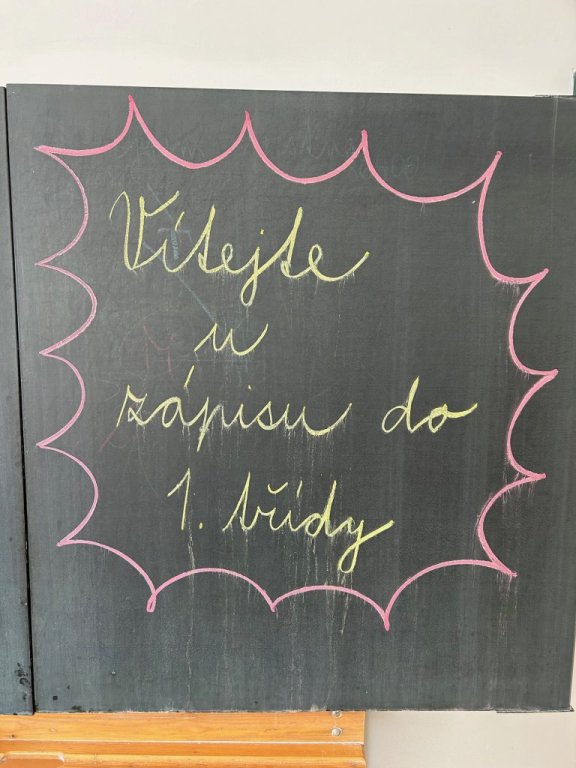 Vítejte
u
zápisu do
1. třídy